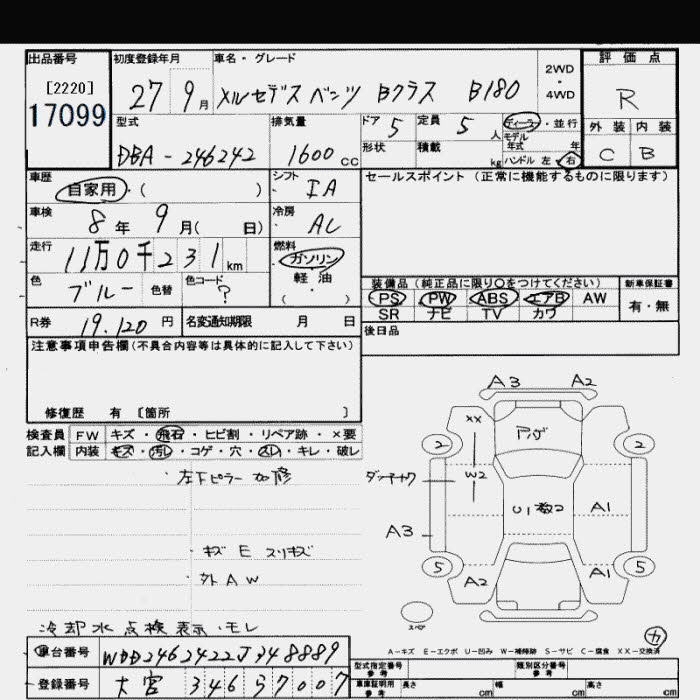 出品番号 初度登録年月 車名・グレード 2WD・4WD 評価点
[2220]
17099
27 9月 メルセデスベンツ Bクラス B180 R
型式 排気量 ドア 5 定員 5人 ディーラー・並行 外装 内装
モデル年式 年
DBA-246242 1600cc 形状 積載 kg ハンドル 左・右 C B
車歴 自家用・( ) シフト IA セールスポイント(正常に機能するものに限ります)
車検 8年 9月( 日) 冷房 AC
走行 11万0千231km 燃料 ガソリン
軽油
・( )
色 ブルー 色替 色コード ? 装備品(純正品に限り○をつけてください) 新車保証書
PS PW ABS エアB AW 有・無
SR ナビ TV カワ
R券 19.120円 名変通知期限 月 日 後日品
注意事項申告欄(不具合内容等は具体的に記入して下さい)
修復歴 有 〔箇所 〕
検査員 FW キズ・飛石・ヒビ割・リペア跡・×要
記入欄 内装 キズ・汚レ・コゲ・穴・スレ・キレ・破レ
左下ピラー加修
・キズ E スリキズ
・外AW
冷却水点検表示・モレ
A3 A2
XX
2 2
W2
U1数2 A1
A3
5 5
A2 A1
スペア
カ
A-キズ E-エクボ U-凹み W-補修跡 S-サビ C-腐食 XX-交換済
車台番号 WDD2462422J348889
型式指定番号 参考 類別区分番号 参考
登録番号 大宮 346 ち 7007
車庫証明用 参考 長さ cm 幅 cm 高さ cm